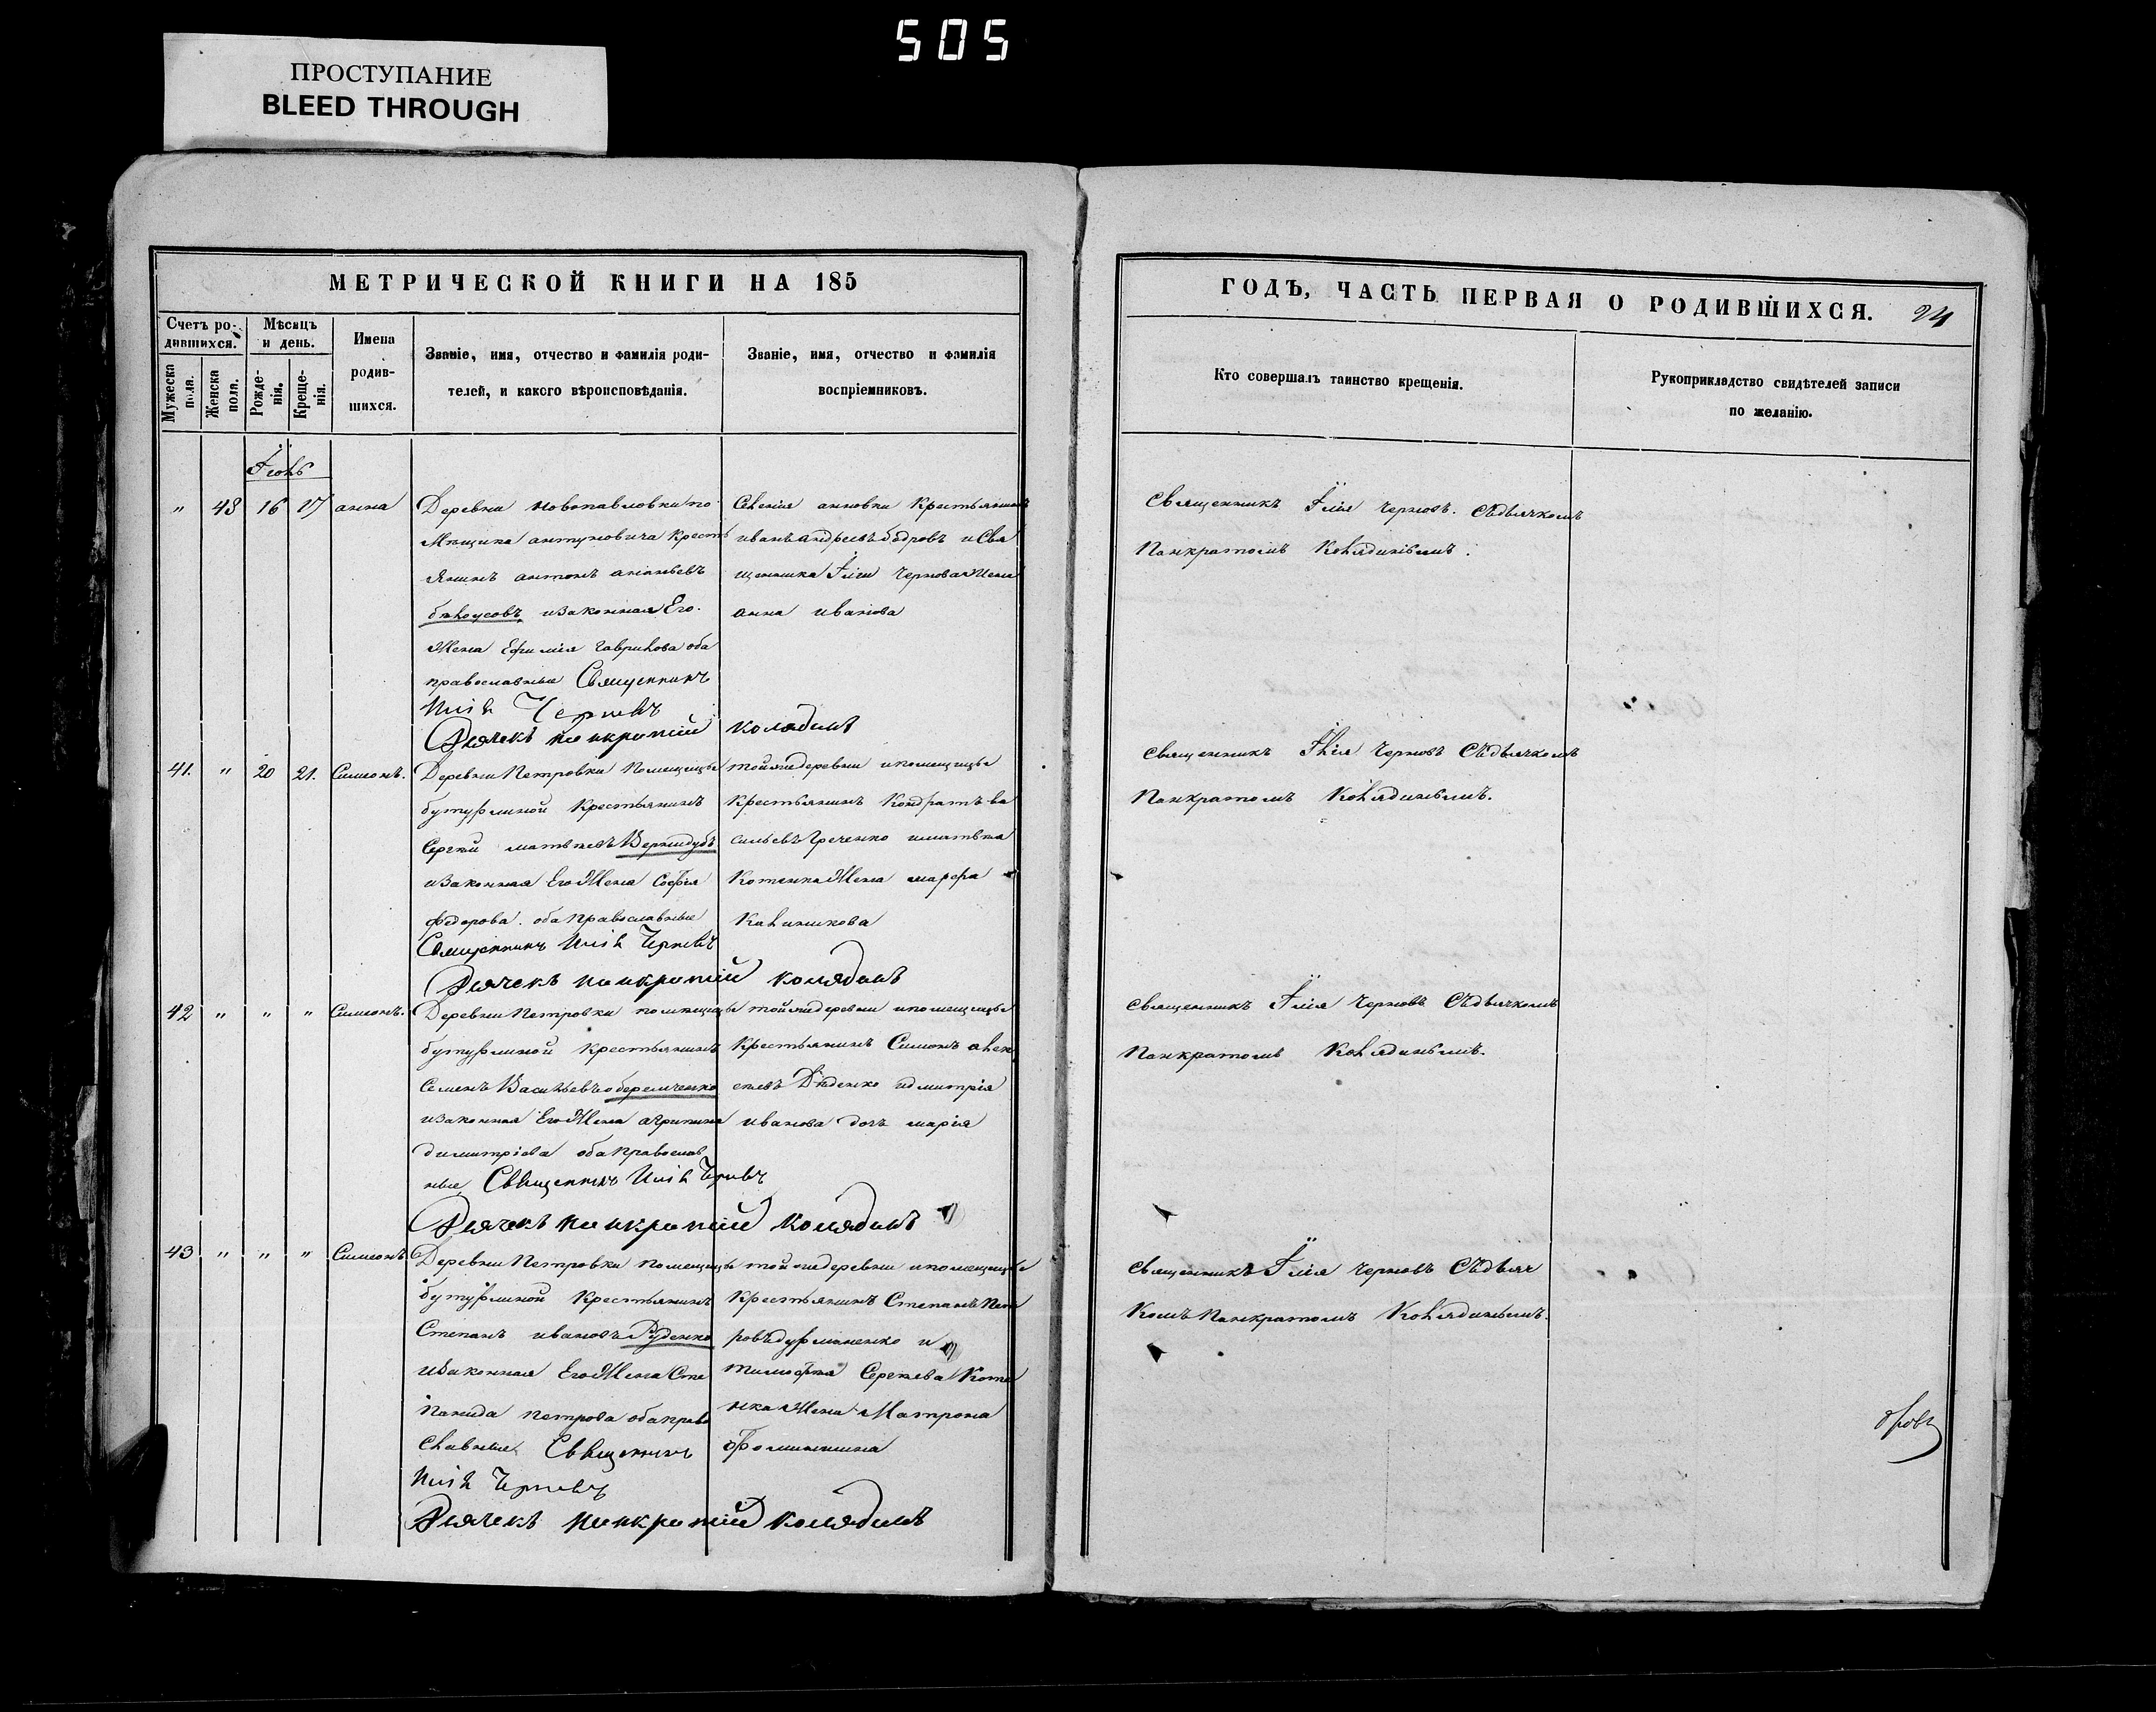 505
ПРОСТУПАНИЕ
BLEED THROUGH
МЕТРИЧЕСКОЙ КНИГИ НА 185
Счетъ ро-
дившихся.
Мѣсяцъ
и день.
Мужеска
пола.
Женска
пола.
Рожде-
нія.
Креще-
нія.
Имена
родив-
шихся.
Званіе, имя, отчество и фамилія роди-
телей, и какого вѣроисповѣданія.
Званіе, имя, отчество и фамилія
воспріемниковъ.
Іюнь
" 43 16 17 анна
Деревни Новопавловки по
мѣщика антуновича крестъ
янинъ антонъ ананьевъ
бѣлоусовъ изаконная Его
Жена Ефимія гаврилова оба
православные Священникъ
Илія Черневъ
Дячекъ панкратій колядинъ
Селенія анновки Крестьянинъ
иванъ андреевъ бодровъ и Свя
щенника Іліи Чернова Жена
анна иванова
41. " 20 21. Симеонъ.
Деревни Петровки Помещицы
бутурлиной Крестьянинъ
Сергей матвѣевъ Вернидубъ
изаконная Его Жена Софія
федорова. оба православные
Священникъ Илія Черневъ
Дячекъ панкратій колядинъ
тойжедеревни ипомещицы
Крестьянинъ Кондратъ ва
сильевъ Греченко иматвѣя
Котенка Жена марфа
Калиникова
42 " " " Симеонъ.
Деревни Петровки помѣщицы
бутурлиной Крестьянинъ
Семенъ Васильевъ оберемченко
изаконная Его Жена агрипина
димитріева оба православ
ные Священникъ Илія Черневъ
Дячекъ панкратій колядинъ
тойжедеревни ипомещицы
Крестьянинъ Симонъ алек
сеевъ Дѣденко идмитрія
иванова дочь марія
43 " " " Симеонъ
Деревни Петровки Помещицы
бутурлиной Крестьянинъ
Степанъ ивановъ Руденко
изаконная Его Жена Сте
панида петрова оба право
славные Священникъ
Илія Черневъ
Дячекъ панкратій колядинъ
тойжедеревни ипомещицы
Крестьянинъ Степанъ Пет
ровъ дурманенко и
тимофѣя Сергѣева Коте
нка Жена Матрона
Фоминишна
ГОДЪ, ЧАСТЬ ПЕРВАЯ О РОДИВШИХСЯ. 24
Кто совершалъ таинство крещенія.
Рукоприкладство свидѣтелей записи
по желанію.
Священникъ Ілія Черновъ. Съдьячкомъ
Панкратомъ Колядинымъ.
Священникъ Ілія Черновъ Съдьячкомъ
Панкратомъ Колядинымъ.
Священникъ Ілія Черновъ Съдьячкомъ
Панкратомъ Колядинымъ.
Священникъ Ілія Черновъ Съдьяч
Комъ Панкратомъ Колядинымъ.